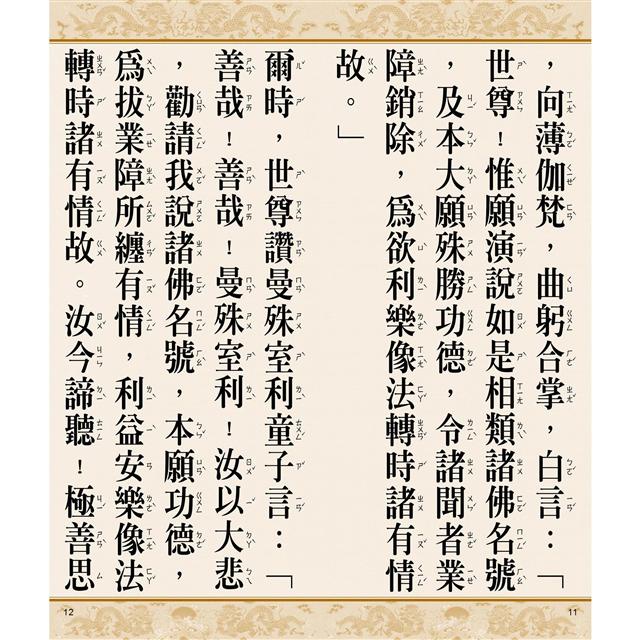 ，向薄伽梵，曲躬合掌，白言：「
世尊！惟願演說如是相類諸佛名號
，及本大願殊勝功德，令諸聞者業
障銷除，為欲利樂像法轉時諸有情
故。」
爾時，世尊讚曼殊室利童子言：「
善哉！善哉！曼殊室利！汝以大悲
，勸請我說諸佛名號，本願功德，
為拔業障所纏有情，利益安樂像法
轉時諸有情故。汝今諦聽！極善思
12
11